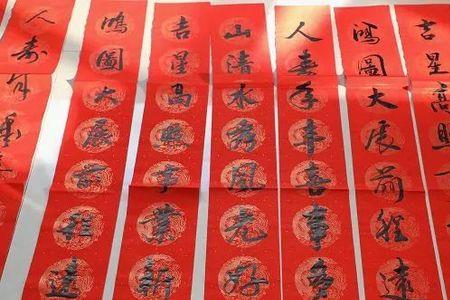 吉星高照
鴻圖大展前程遠
人寿年丰喜事多
山清水秀風光好
吉星高照事業新
鴻圖大展前程遠
人寿年